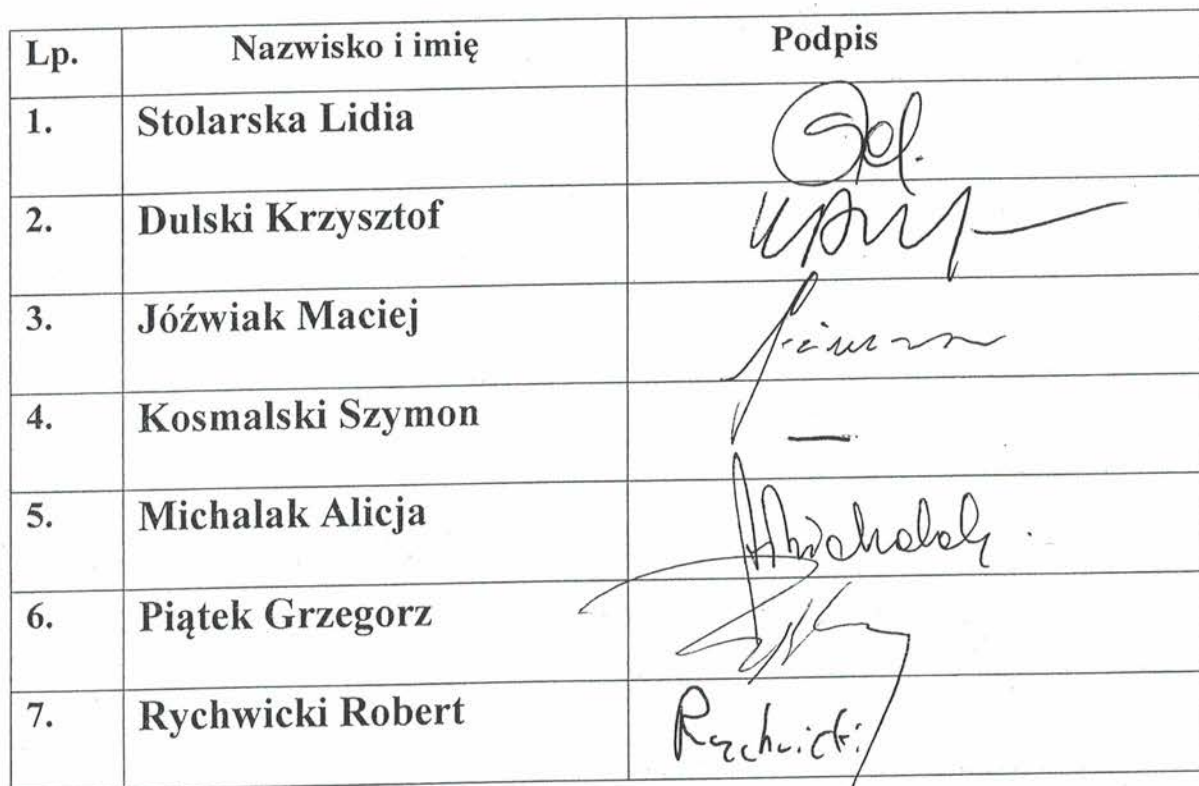 Lp. Nazwisko i imię Podpis
1. Stolarska Lidia
2. Dulski Krzysztof
3. Jóźwiak Maciej
4. Kosmalski Szymon —
5. Michalak Alicja AMichalak
6. Piątek Grzegorz
7. Rychwicki Robert Rychwicki